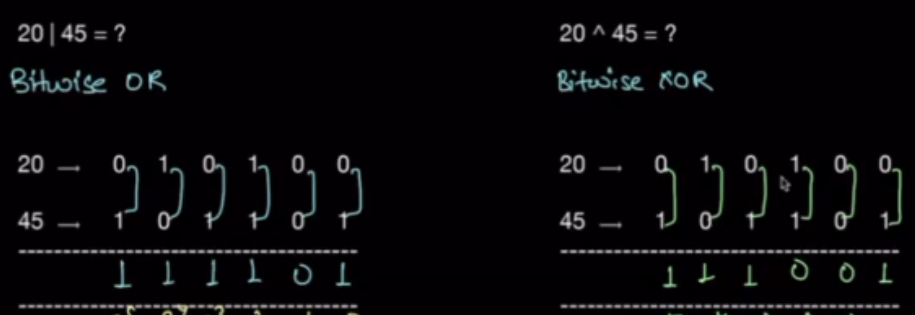 20 | 45 = ?
Bitwise OR
20 → 0 1 0 1 0 0
45 → 1 0 1 1 0 1
1 1 1 1 0 1
20 ^ 45 = ?
Bitwise XOR
20 → 0 1 0 1 0 0
45 → 1 0 1 1 0 1
1 1 1 0 0 1